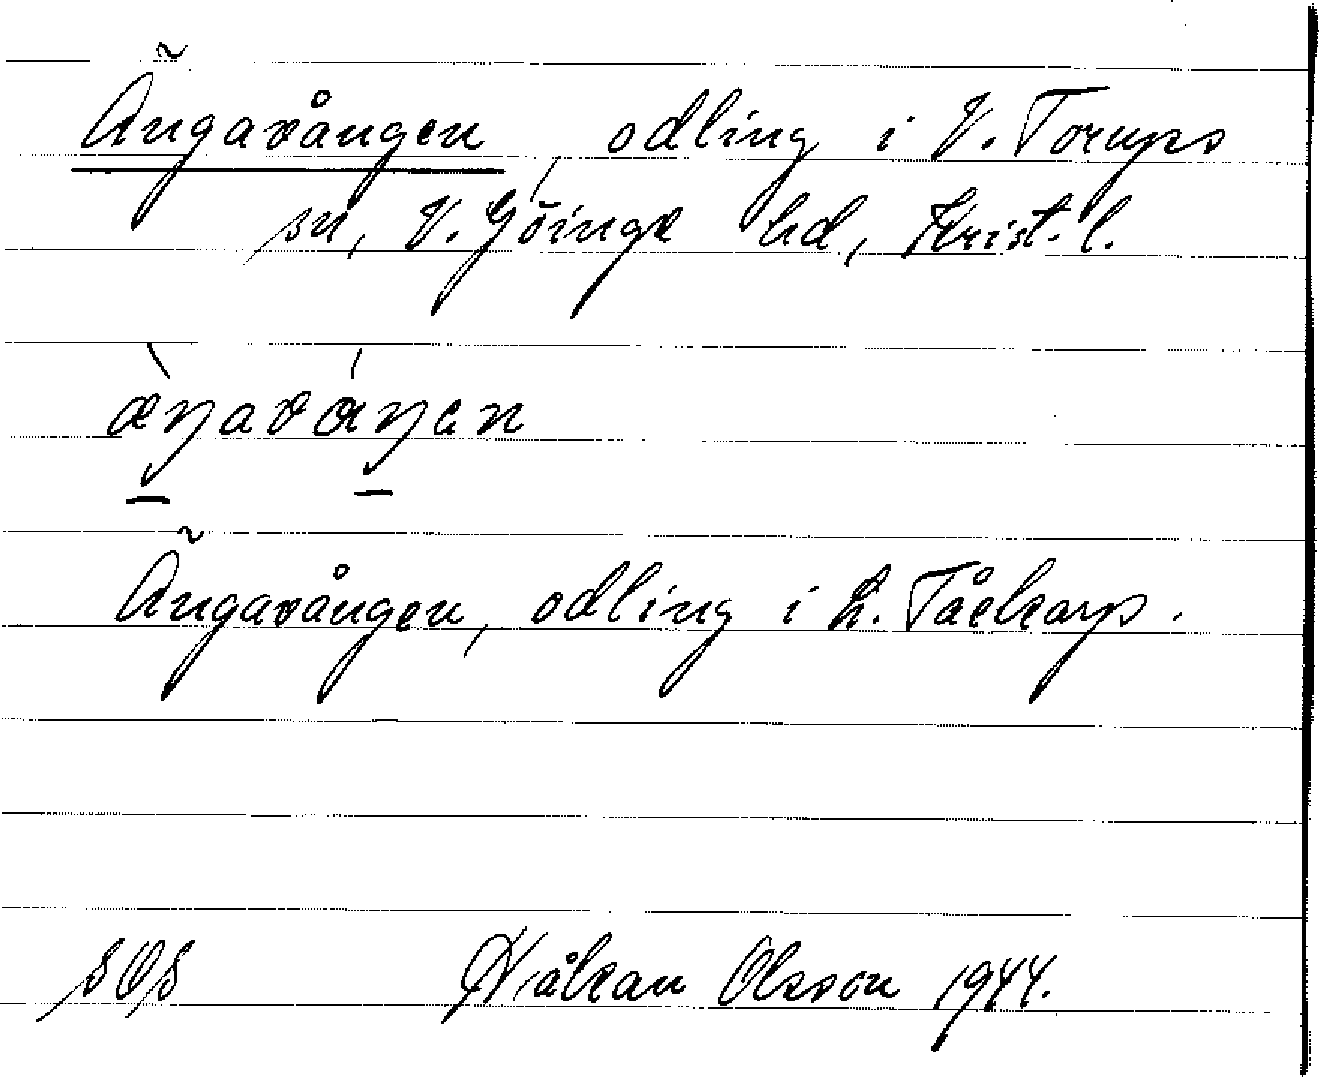 Ängavången, odling i V. Torups
sn, V. Göinge hd, Krist. l.
æŋavåŋen
Ängavången, odling i L. Tåckarp.
SOS Håkan Olsson 1944.